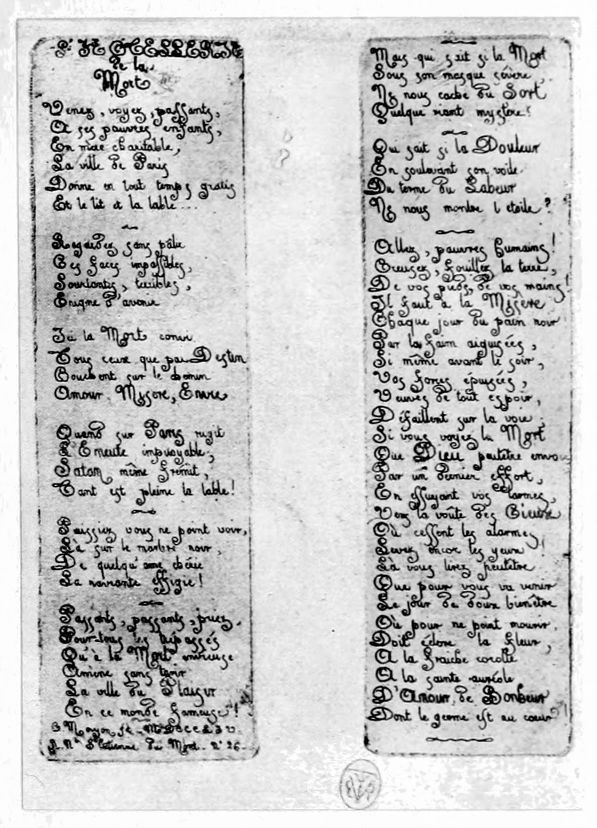 L'HOTELLERIE
de la
Mort
Venez, voyez, passants,
A ses pauvres enfants,
En mère charitable,
La ville de Paris
Donne en tout temps gratis
Et le lit et la table...
Regardez sans pâlir
Ces faces impassibles,
Souriantes, terribles,
Enigme d'avenir
Ici la Mort convie
Tous ceux que par Destin
Couchent sur le chemin
Amour, Misère, Envie
Quand sur Paris rugit
L'Emeute impitoyable,
Satan même frémit,
Tant est pleine la table!
Puissiez vous ne point voir,
Là sur le marbre noir,
De quelqu'âme chérie
La navrante effigie!
Passants, passants, priez,
Pour tous les trépassés
Qu'à la Mort envieuse
Amène sans tarir
La ville du Plaisir
En ce monde fameuse!
C. Meryon
R. Ne St Etienne du Mont. No 26.
Mais qui sait si la Mort
Sous son masque sévère
Ne nous cache du Sort
Quelque riant mystère?
Qui sait si la Douleur
En soulevant son voile
Du terme du Labeur
Ne nous montre l'étoile?
Allez, pauvres humains!
Creusez, fouillez la terre,
De vos pieds, de vos mains!
Il faut à la Misère
Chaque jour du pain noir
Par la faim aiguisées,
Si même avant le soir,
Vos forces, épuisées,
Veuves de tout espoir,
Défaillent sur la voie
Si vous voyez la Mort
Que Dieu peutêtre envoie
Par un dernier effort,
En essuyant vos larmes,
Vers la voute des Cieux
Où cessent les alarmes,
Levez encor les yeux!
Là vous lirez peutêtre
Que pour vous va venir
Le jour de doux bienêtre
Où pour ne point mourir,
Doit éclore la fleur,
A la fraiche corolle
A la sainte auréole
D'Amour, de Bonheur
Dont le germe est au cœur